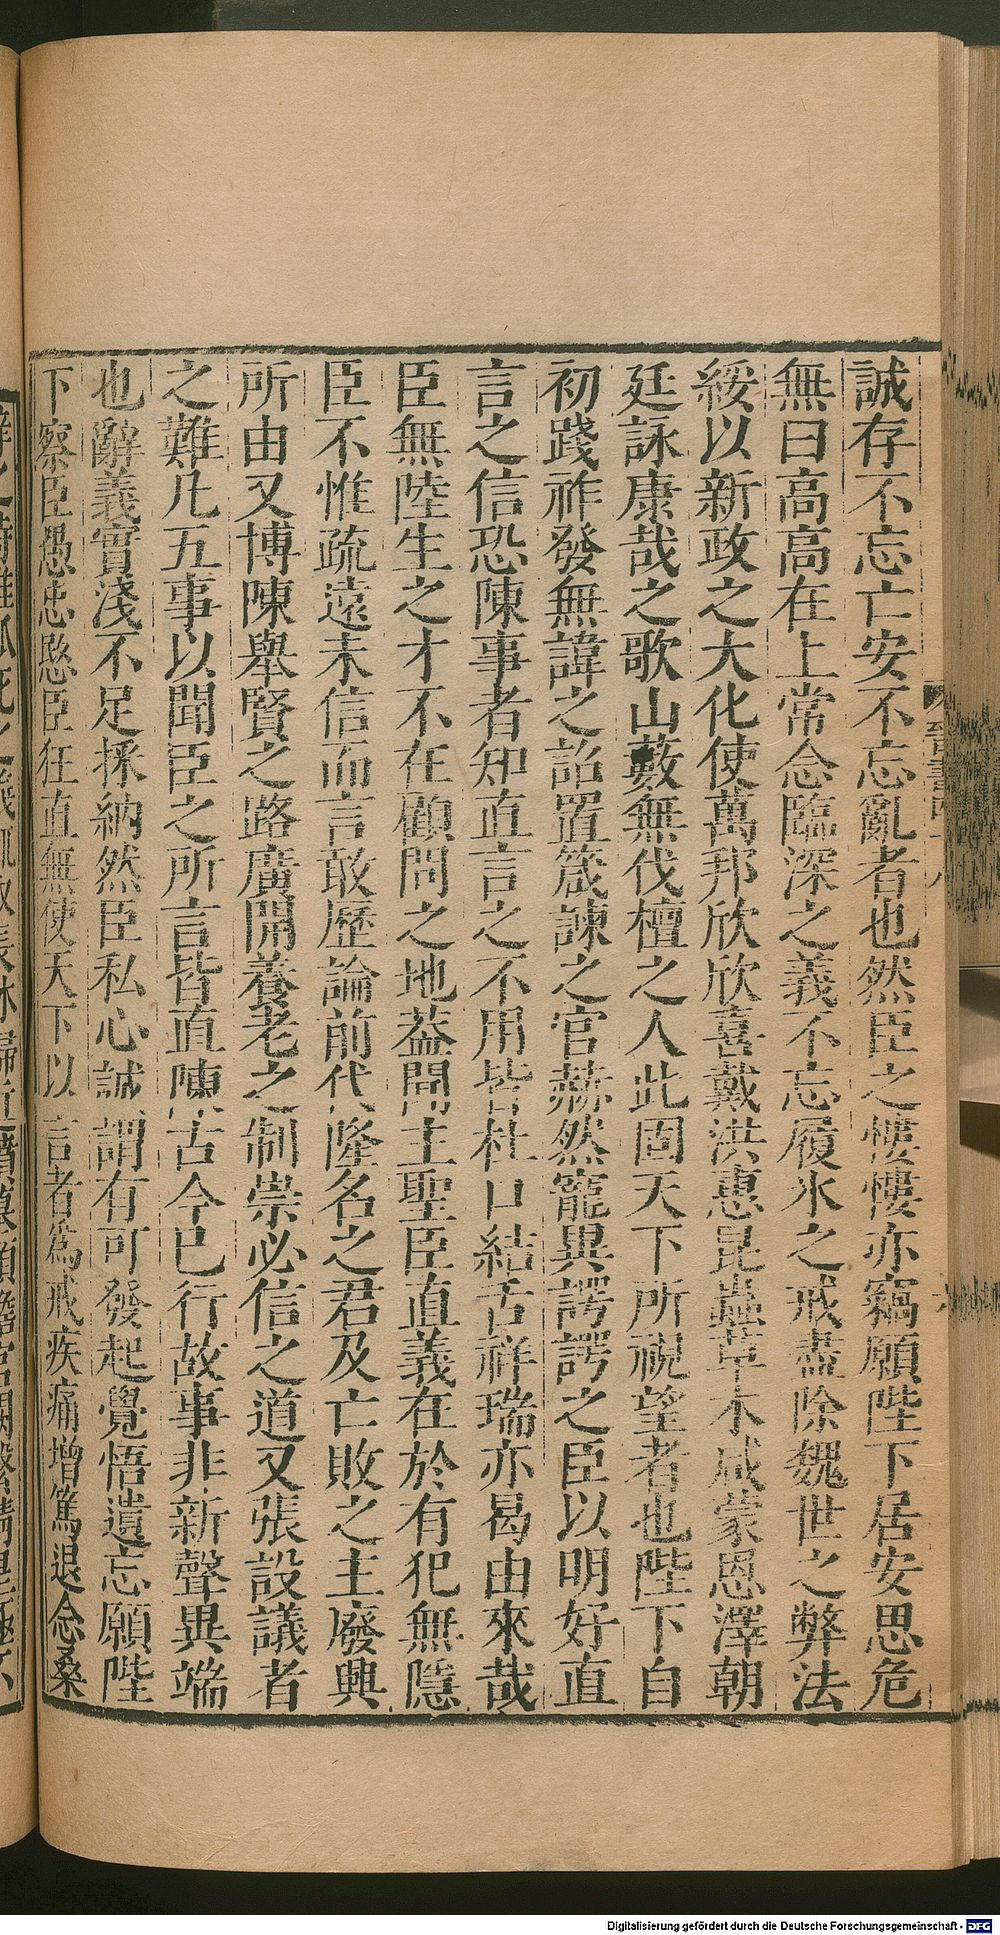 誠存不忘亡安不忘亂者也然臣之慺慺亦竊願陛下居安思危
無曰高高在上常念臨深之義不忘履氷之戒盡除魏世之弊法
綏以新政之大化使萬邦欣欣喜戴洪惠昆蟲草木咸蒙恩澤朝
廷詠康哉之歌山藪無伐檀之人此固天下所視望者也陛下自
初踐祚發無諱之詔置箴諫之官赫然寵異諤諤之臣以明好直
言之信恐陳事者知直言之不用皆杜口結舌祥瑞亦曷由來哉
臣無陸生之才不在顧問之地葢聞主聖臣直義在於有犯無隱
臣不惟疏遠未信而言敢歷論前代隆名之君及亡敗之主廢興
所由又博陳舉賢之路廣開養老之制崇必信之道又張設議者
之難凡五事以聞臣之所言皆直陳古今已行故事非新聲異端
也辭義實淺不足採納然臣私心誠謂有可發起覺悟遺忘願陛
下察臣愚忠愍臣狂直無使天下以言者爲戒疾痛增篤退念桑
晉書四十八
Digitalisierung gefördert durch die Deutsche Forschungsgemeinschaft - DFG